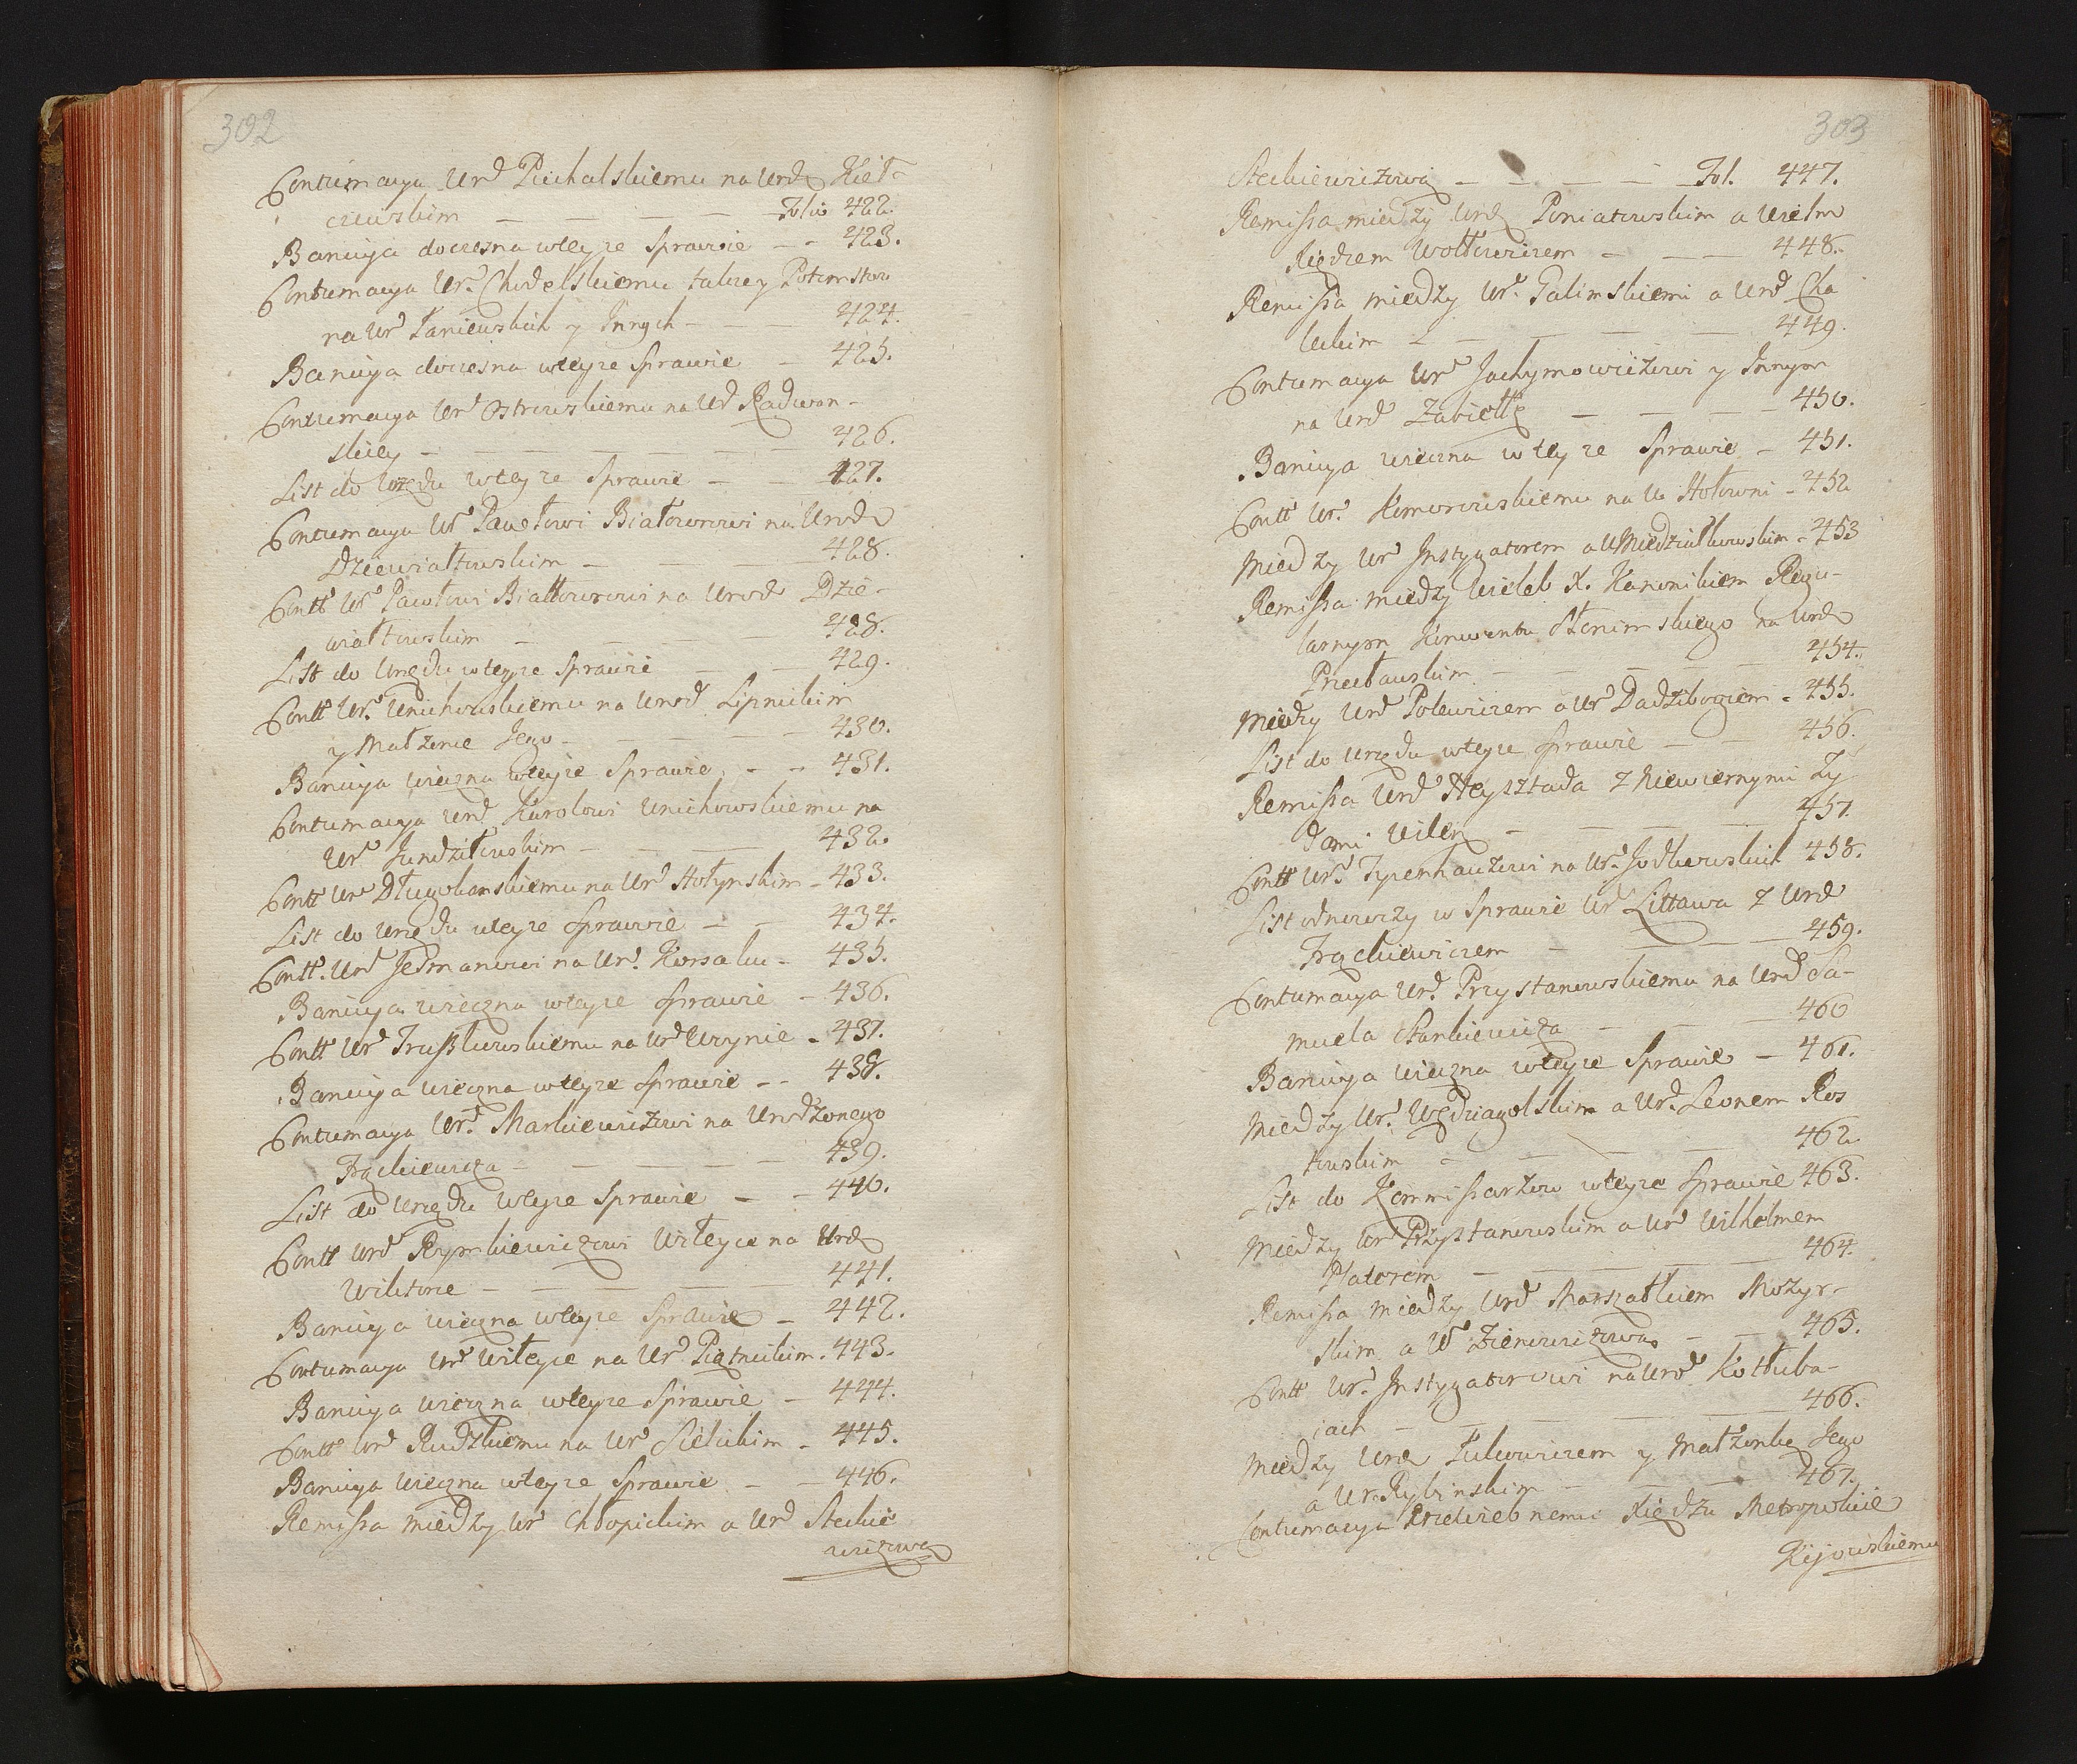 302
Contumacya Urd Piechalskiemu na Urd Kieł-
czewskim — — — — — Folio 422.
Banicya doczesna wteyże Sprawie — - 423.
Contumacya Ur. Chodelskiemu Potomstwu
na Ur Łaniewskich y Innych - — — 424.
Banicya doczesna wteyże Sprawie — 425.
Contumacya Ur Ostrowskiemu na Ud Radwan-
skiey — — — — — — 426.
List do Urzędu wteyże Sprawie — — 427.
Contumacya Ur Pawłowi Białłozorowi na Urod
Dziewiałtowskim — — — 428.
Contt Ur Pawłowi Białłozorowi na Urod Dzie-
wiałtowskim — — — 428.
List do Urzędu wteyże Sprawie — — 429.
Contt Ur. Uniehowskiemu na Urod Lipnickim
y Małżence Jego — — — — 430.
Banicya wieczna wteyże Sprawie - - 431.
Contumacya Urd Karolowi Uniehowskiemu na
Ur Jundziłowskim — — — 432.
Contt Ur Długoborskiemu na Ur Hołynskim - 433.
List do Urzędu wteyże Sprawie — — 434.
Contt. Urd Jedmanowi na Ur. Korsaku - 435.
Banicya wieczna wteyże Sprawie - 436.
Contt Ur Truszkowskiemu na Ur - 437.
Banicya wieczna wteyże Sprawie - - 438.
Contumacya Ur. Markiewiczowi na Urodzonego
Frąckiewicza — — — — — 439.
List do Urzędu wteyże Sprawie — - 440.
Contt Urd Rymkiewiczowi na Urd
— — — — 441.
Banicya wieczna wteyże Sprawie - 442.
Contumacya Ur na Ur Piątnickim. 443.
Banicya wieczna wteyże Sprawie - 444.
Contt Urd Rudzkiemu na Ur Sielickim - 445.
Banicya wieczna wteyże Sprawie — — 446.
Remissa między Ur Chłopickim a Urd Steckie
wiczową
303
Steckiewiczową — — — — Fol. 447.
Remissa między Urd Poniatowskim a Wielm
Xiędzem Wołłowiczem — — — 448.
Remissa między Ur. Galimskiemi a Urd Cha
leckim — — — — 449.
Contumacya Ur Jachymowiczowi y Innym
na Urd Zabiełłę — — — — 450.
Banicya wieczna wteyże Sprawie - 451.
Contt Ur. Komorowskiemu na U Hołowni - 452
Między Ur Instygatorem a U Niedziałkowskim - 453
Remissa między Wieleb X. Kanonikiem Regu-
larnym Konwentu Słonimskiego na Urd
Przecławskim — — — — 454.
Między Urd Polewiczem a Ur Dadzibogiem - 455.
List do Urzędu wteyże Sprawie — — 456.
Remissa Urd Heysztada z Niewiernymi Ży
dami Wileń — — — — 457.
Contt Ur. Tyzenhauzowi na Ur. Jodkowskich 458.
List odnowczy w Sprawie Ur Littawa z Urd
Frąckiewiczem — — — 459.
Contumacya Urd. Przystanowskiemu na Urd Sa-
muela Stankiewicza — — — 460
Banicya wieczna wteyże Sprawie - 461.
Między Ur. Wędziagolskim a Ur. Leonem Ros
towskim — — — — 462.
List do Kommissarzow wteyże Sprawie 463.
Między Ur Przystanowskim a Ur Wilhelmem
Platerem — — — — 464.
Remissa między Urd Marszałkiem Mozyr-
skim a Ur Zienowiczową — — 465.
Contt Ur. Instygatorowi na Urod Kotłuba-
iach — — — — 466.
Między Urd Tukowiczem y Małżonką Jego
a Ur. Rybinskim — — — — 467.
Contumacya Przewielebnemu Xiędzu Metropolicie
Kijowskiemu